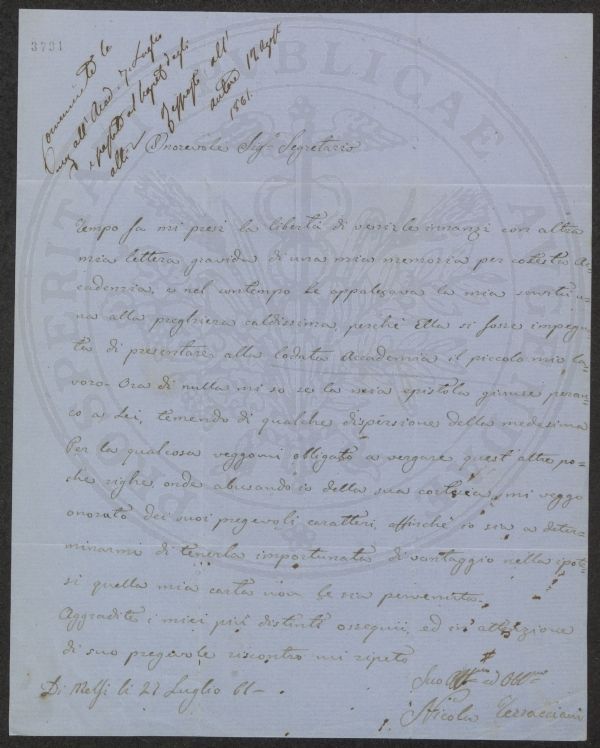 3791
Comunicata
all' Acad. 7 Luglio
e
atti
all'
autore 12 Agosto
1861.
Onorevole Sigr Segretario
Tempo fa mi presi la libertà di venirle innanzi con altra
mia lettera gravida di una mia memoria per cotesta Ac=
cademia, e nel contempo Le appalesava la mia servitù u=
na alla preghiera caldissima, perchè Ella si fosse impegna
ta di presentare alla lodata Accademia il piccolo mio la=
voro. Ora di nulla mi so se la mia epistola giunse peran=
co a Lei, temendo di qualche dispersione della medesima
Per la qualcosa veggomi obligato a vergare quest'altre po=
che righe onde abusando io della sua cortesia, mi veggo
onorato dei suoi pregevoli caratteri, affinchè io sia a deter=
minarmi di tenerla importunata di vantaggio nella ipote=
si quella mia carta non Le sia pervenuta.
Aggradite i miei più distinti ossequii, ed in attenzione
di suo pregevole riscontro mi ripeto
Di Melfi li 27 Luglio 61—
Suo ed Obbmo
Nicola Terracciani
PROSPERITATI PUBLICAE AUGENDAE